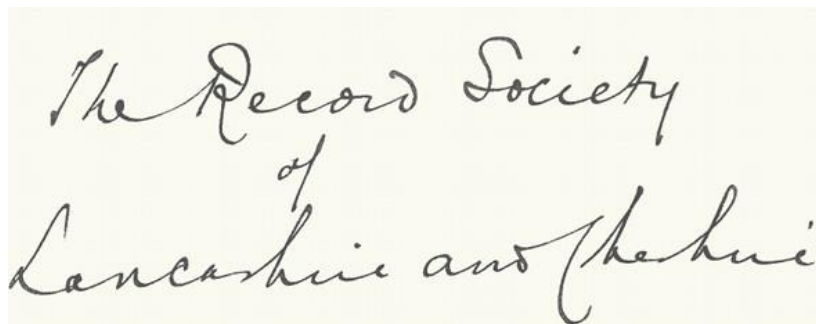 The Record Society
of
Lancashire and Cheshire